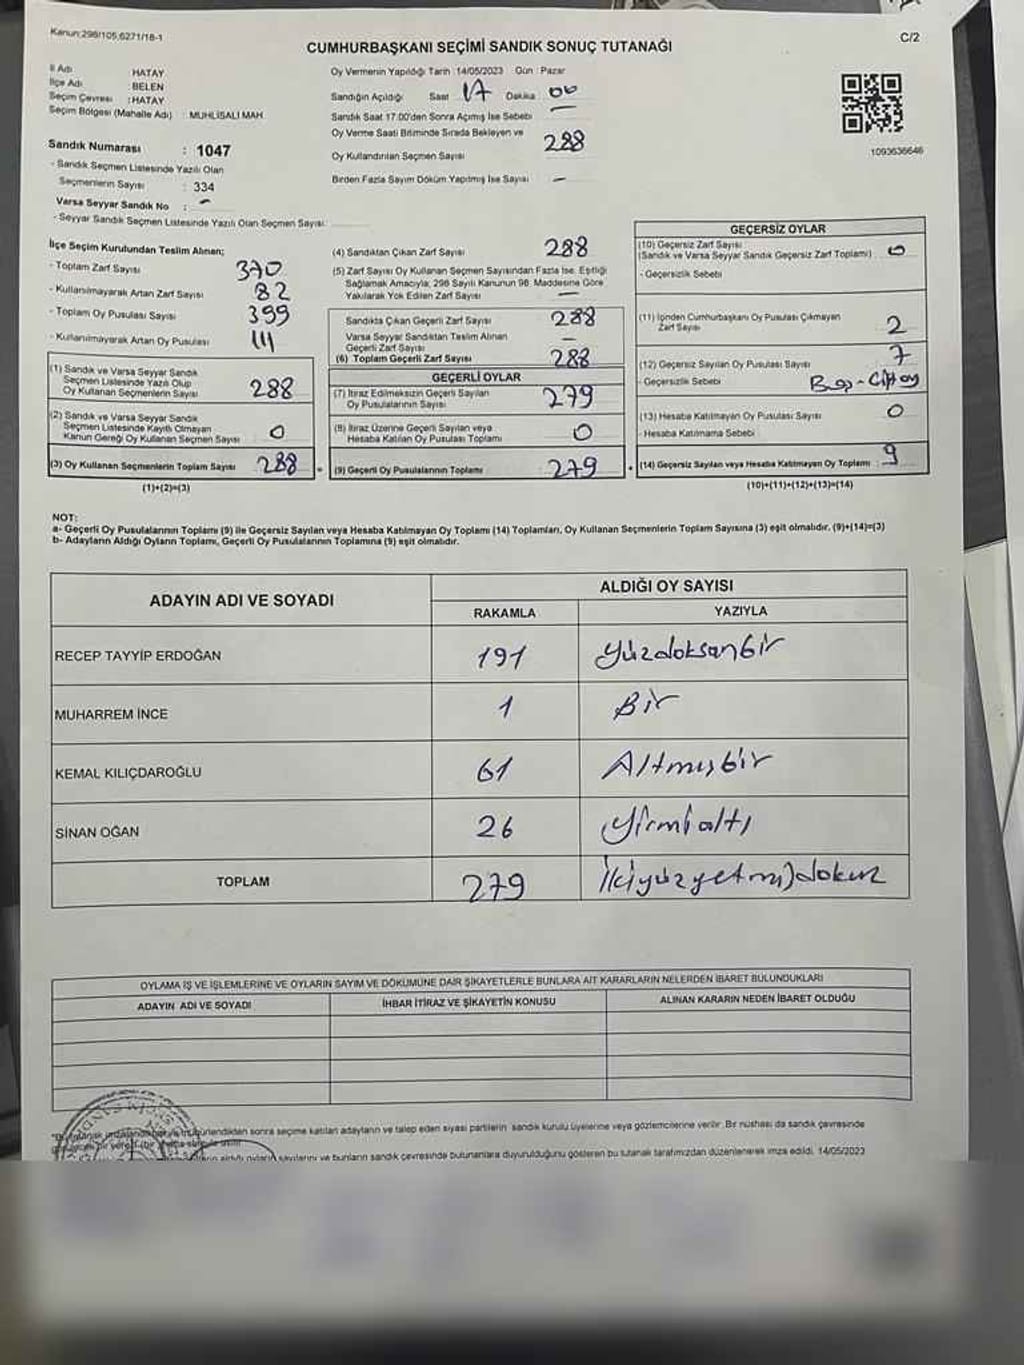 Kanun:298/105,6271/18-1
C/2
CUMHURBAŞKANI SEÇİMİ SANDIK SONUÇ TUTANAĞI
İl Adı HATAY
İlçe Adı BELEN
Seçim Çevresi : HATAY
Seçim Bölgesi (Mahalle Adı) : MUHLİSALİ MAH.
Oy Vermenin Yapıldığı Tarih :14/05/2023 Gün : Pazar
Sandığın Açıldığı Saat 17 Dakika 00
Sandık Saat 17.00'den Sonra Açımış İse Sebebi –
Oy Verme Saati Bitiminde Sırada Bekleyen ve
Oy Kullandırılan Seçmen Sayısı 288
Birden Fazla Sayım Döküm Yapılmış İse Sayısı –
1093636646
Sandık Numarası : 1047
- Sandık Seçmen Listesinde Yazılı Olan
Seçmenlerin Sayısı : 334
Varsa Seyyar Sandık No : –
- Seyyar Sandık Seçmen Listesinde Yazılı Olan Seçmen Sayısı
İlçe Seçim Kurulundan Teslim Alınan;
- Toplam Zarf Sayısı 370
- Kullanılmayarak Artan Zarf Sayısı 82
- Toplam Oy Pusulası Sayısı 399
- Kullanılmayarak Artan Oy Pusulası 111
(1) Sandık ve Varsa Seyyar Sandık
Seçmen Listesinde Yazılı Olup
Oy Kullanan Seçmenlerin Sayısı 288
(2) Sandık ve Varsa Seyyar Sandık
Seçmen Listesinde Kayıtlı Olmayan
Kanun Gereği Oy Kullanan Seçmen Sayısı 0
(3) Oy Kullanan Seçmenlerin Toplam Sayısı 288
(1)+(2)=(3)
(4) Sandıktan Çıkan Zarf Sayısı 288
(5) Zarf Sayısı Oy Kullanan Seçmen Sayısından Fazla İse, Eşitliği
Sağlamak Amacıyla; 298 Sayılı Kanunun 98. Maddesine Göre
Yakılarak Yok Edilen Zarf Sayısı –
Sandıkta Çıkan Geçerli Zarf Sayısı 288
Varsa Seyyar Sandıktan Teslim Alınan
Geçerli Zarf Sayısı –
(6) Toplam Geçerli Zarf Sayısı 288
GEÇERLİ OYLAR
(7) İtiraz Edilmeksizin Geçerli Sayılan
Oy Pusulalarının Sayısı 279
(8) İtiraz Üzerine Geçerli Sayılan veya
Hesaba Katılan Oy Pusulası Toplamı 0
(9) Geçerli Oy Pusulalarının Toplamı 279
GEÇERSİZ OYLAR
(10) Geçersiz Zarf Sayısı
(Sandık ve Varsa Seyyar Sandık Geçersiz Zarf Toplamı) 0
- Geçersizlik Sebebi
(11) İçinden Cumhurbaşkanı Oy Pusulası Çıkmayan
Zarf Sayısı 2
(12) Geçersiz Sayılan Oy Pusulası Sayısı 7
- Geçersizlik Sebebi Boş-Çift oy
(13) Hesaba Katılmayan Oy Pusulası Sayısı 0
- Hesaba Katılmama Sebebi
(14) Geçersiz Sayılan veya Hesaba Katılmayan Oy Toplamı : 9
(10)+(11)+(12)+(13)=(14)
NOT:
a- Geçerli Oy Pusulalarının Toplamı (9) ile Geçersiz Sayılan veya Hesaba Katılmayan Oy Toplamı (14) Toplamları, Oy Kullanan Seçmenlerin Toplam Sayısına (3) eşit olmalıdır. (9)+(14)=(3)
b- Adayların Aldığı Oyların Toplamı, Geçerli Oy Pusulalarının Toplamına (9) eşit olmalıdır.
ADAYIN ADI VE SOYADI
ALDIĞI OY SAYISI
RAKAMLA YAZIYLA
RECEP TAYYİP ERDOĞAN 191 Yüzdoksanbir
MUHARREM İNCE 1 Bir
KEMAL KILIÇDAROĞLU 61 Altmışbir
SİNAN OĞAN 26 Yirmialtı
TOPLAM 279 İkiyüzyetmişdokuz
OYLAMA İŞ VE İŞLEMLERİNE VE OYLARIN SAYIM VE DÖKÜMÜNE DAİR ŞİKAYETLERLE BUNLARA AİT KARARLARIN NELERDEN İBARET BULUNDUKLARI
ADAYIN ADI VE SOYADI İHBAR İTİRAZ VE ŞİKAYETİN KONUSU ALINAN KARARIN NEDEN İBARET OLDUĞU
sonra seçime katılan adayların ve talep eden siyasi partilerin sandık kurulu üyelerine veya gözlemcilerine verilir. Bir nüshası da sandık çevresinde
aldığı oyların sayılarını ve bunların sandık çevresinde bulunanlara duyurulduğunu gösteren bu tutanak tarafımızdan düzenlenerek imza edildi. 14/05/2023